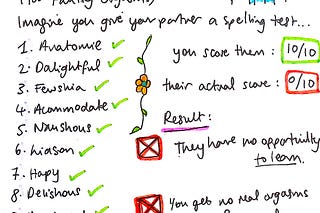 Imagine you give your partner a spelling test...
1. Anatomie
2. Dalightful
3. Fewshia
4. Acommodate
5. Naushous
6. Liason
7. Hapy
8. Delishous
you score them : 10/10
their actual score : 0/10
Result :
They have no opportunity
to learn.
You get no real orgasms